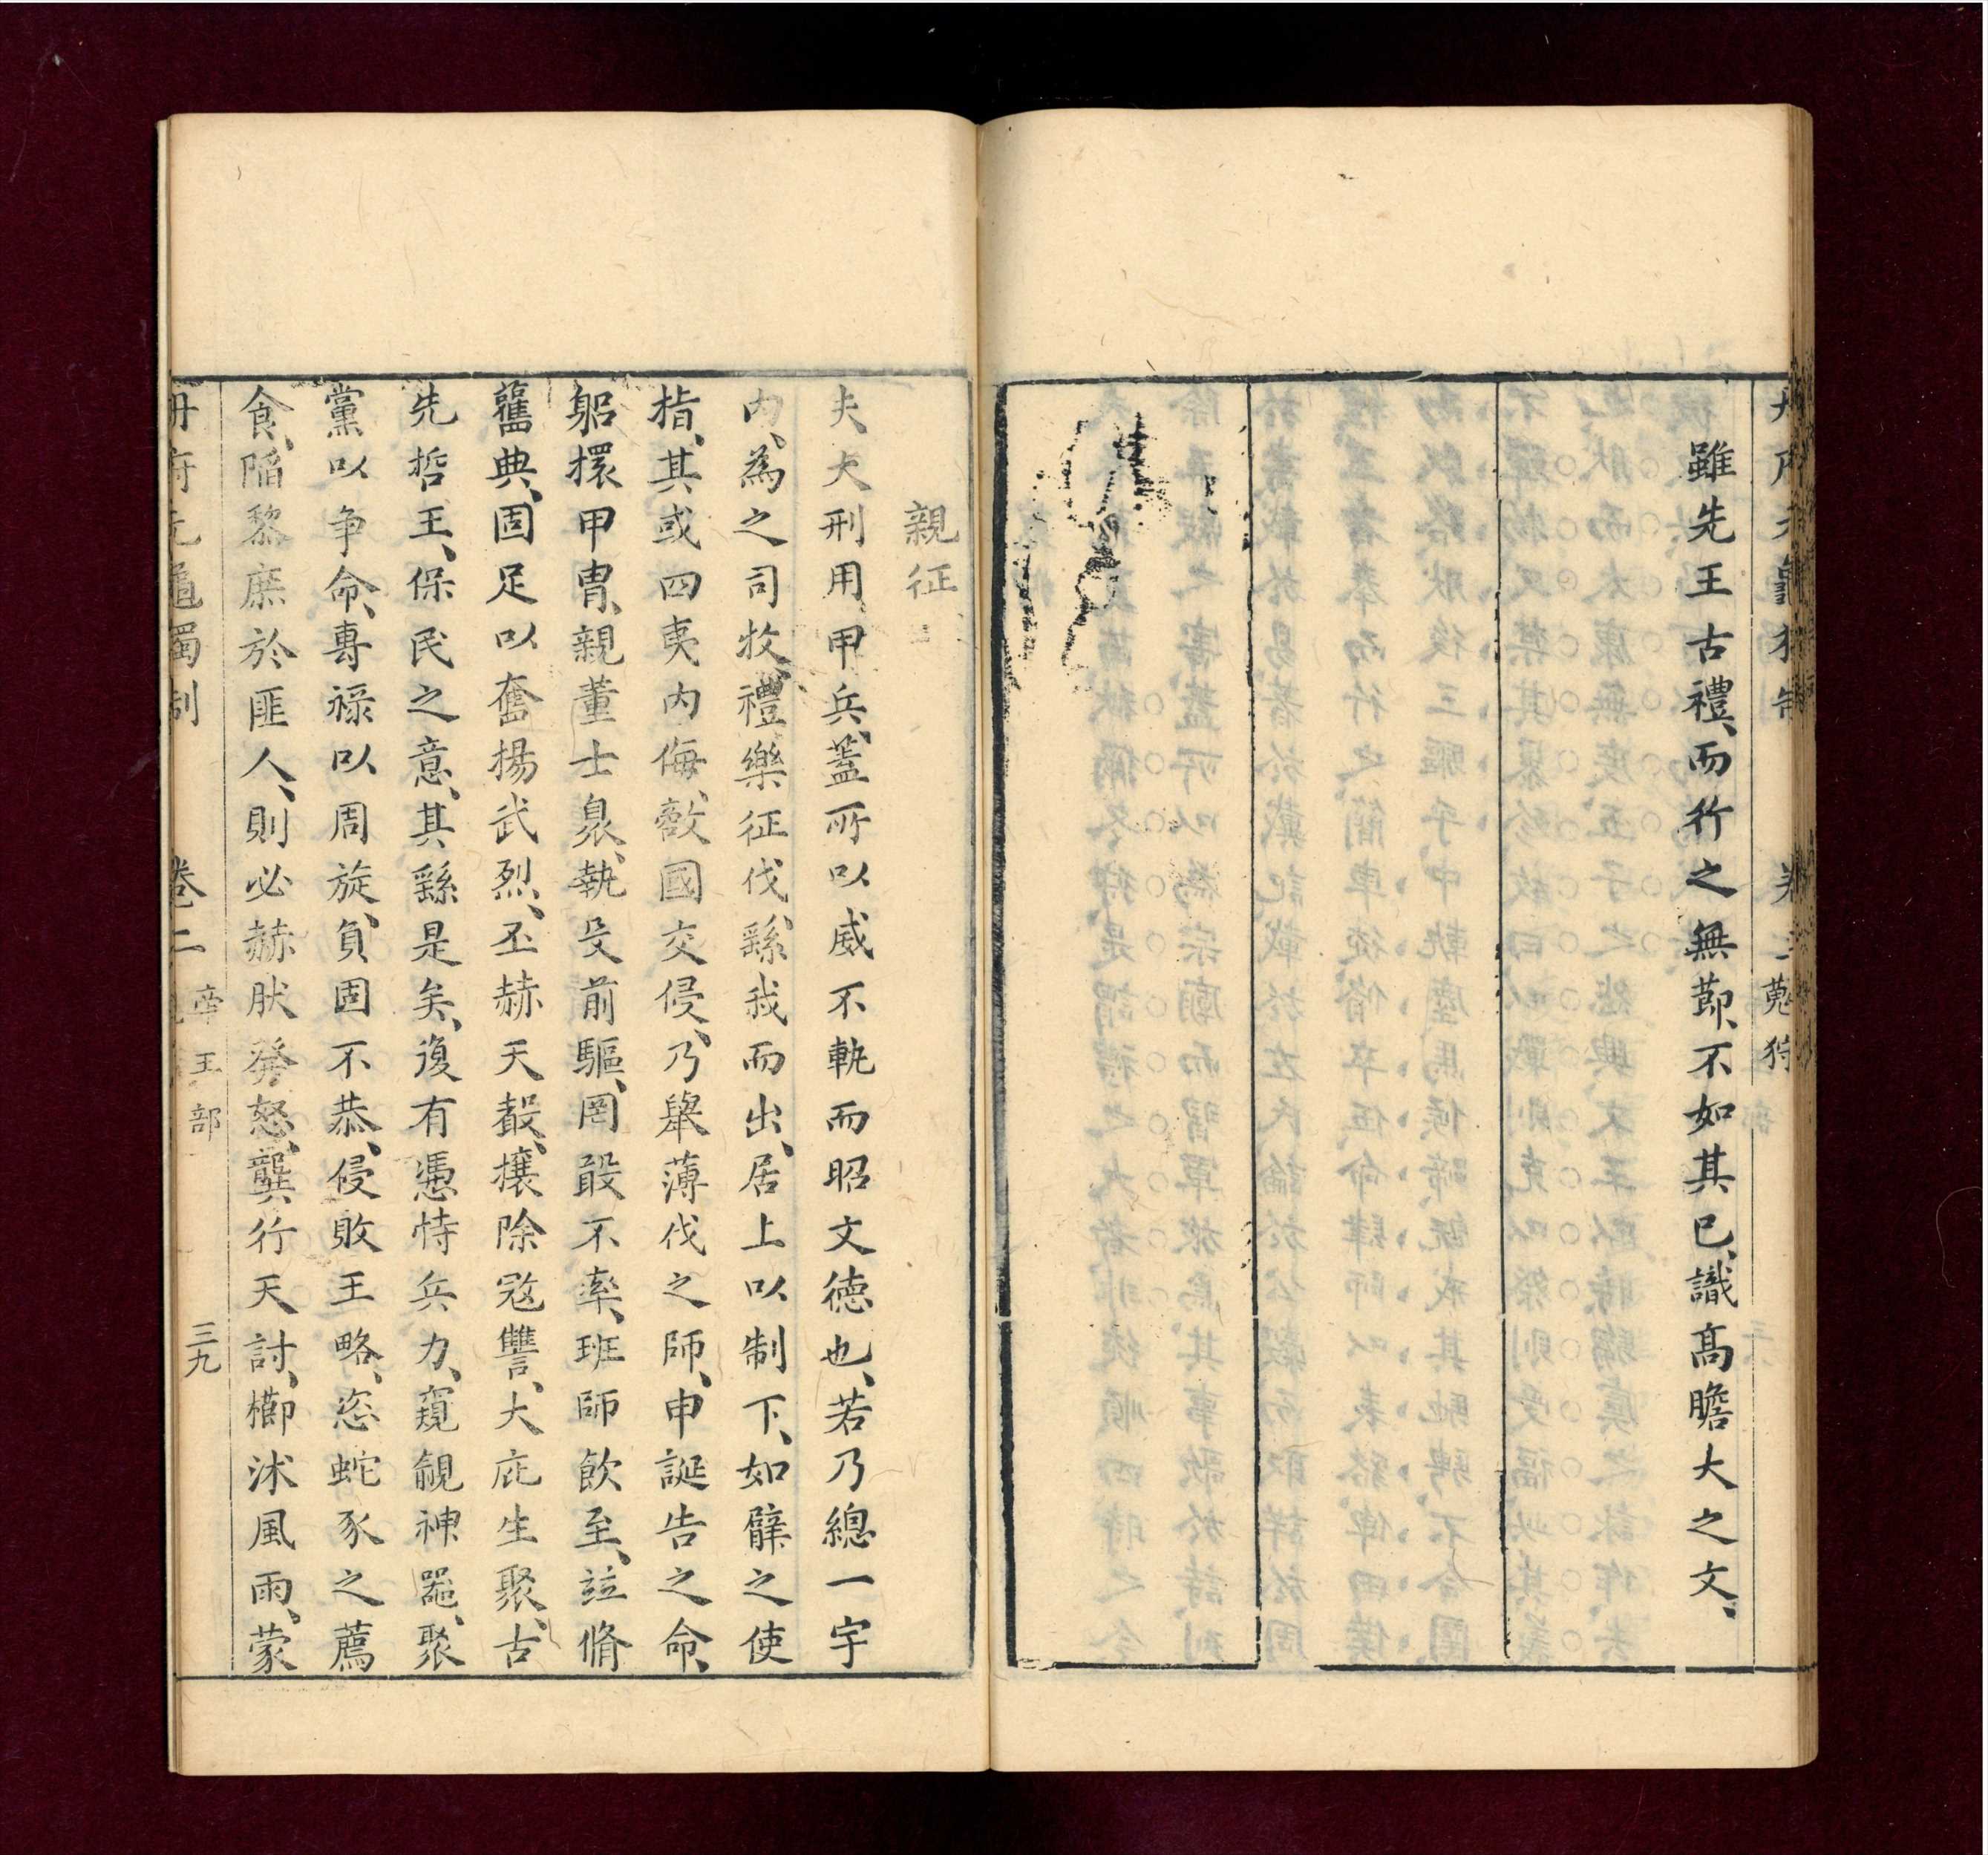 蒐狩
雖先王古禮、而行之無節、不如其已、識高膽大之文、
親征
夫大刑用、甲兵、蓋所以威不軌而昭文德也、若乃總一宇
內、為之司牧、禮樂征伐、繇我而出、居上以制下、如臂之使
指、其或四夷內侮、敵國交侵、乃舉薄伐之師、申誕告之命、
躬擐甲冑、親董士衆、執殳前驅、罔敢不率、班師飲至、竝脩
舊典、固足以奮揚武烈、丕赫天聲、攘除寇讐、大庇生聚、古
先哲王、保民之意、其繇是矣、復有憑恃兵力、窺覦神器、聚
黨以争命、專祿以周旋、負固不恭、侵敗王略、恣蛇豕之薦
食、陷黎庶於匪人、則必赫肰發怒、龔行天討、櫛沐風雨、蒙
册府元龜獨制 卷二 帝王部 三九